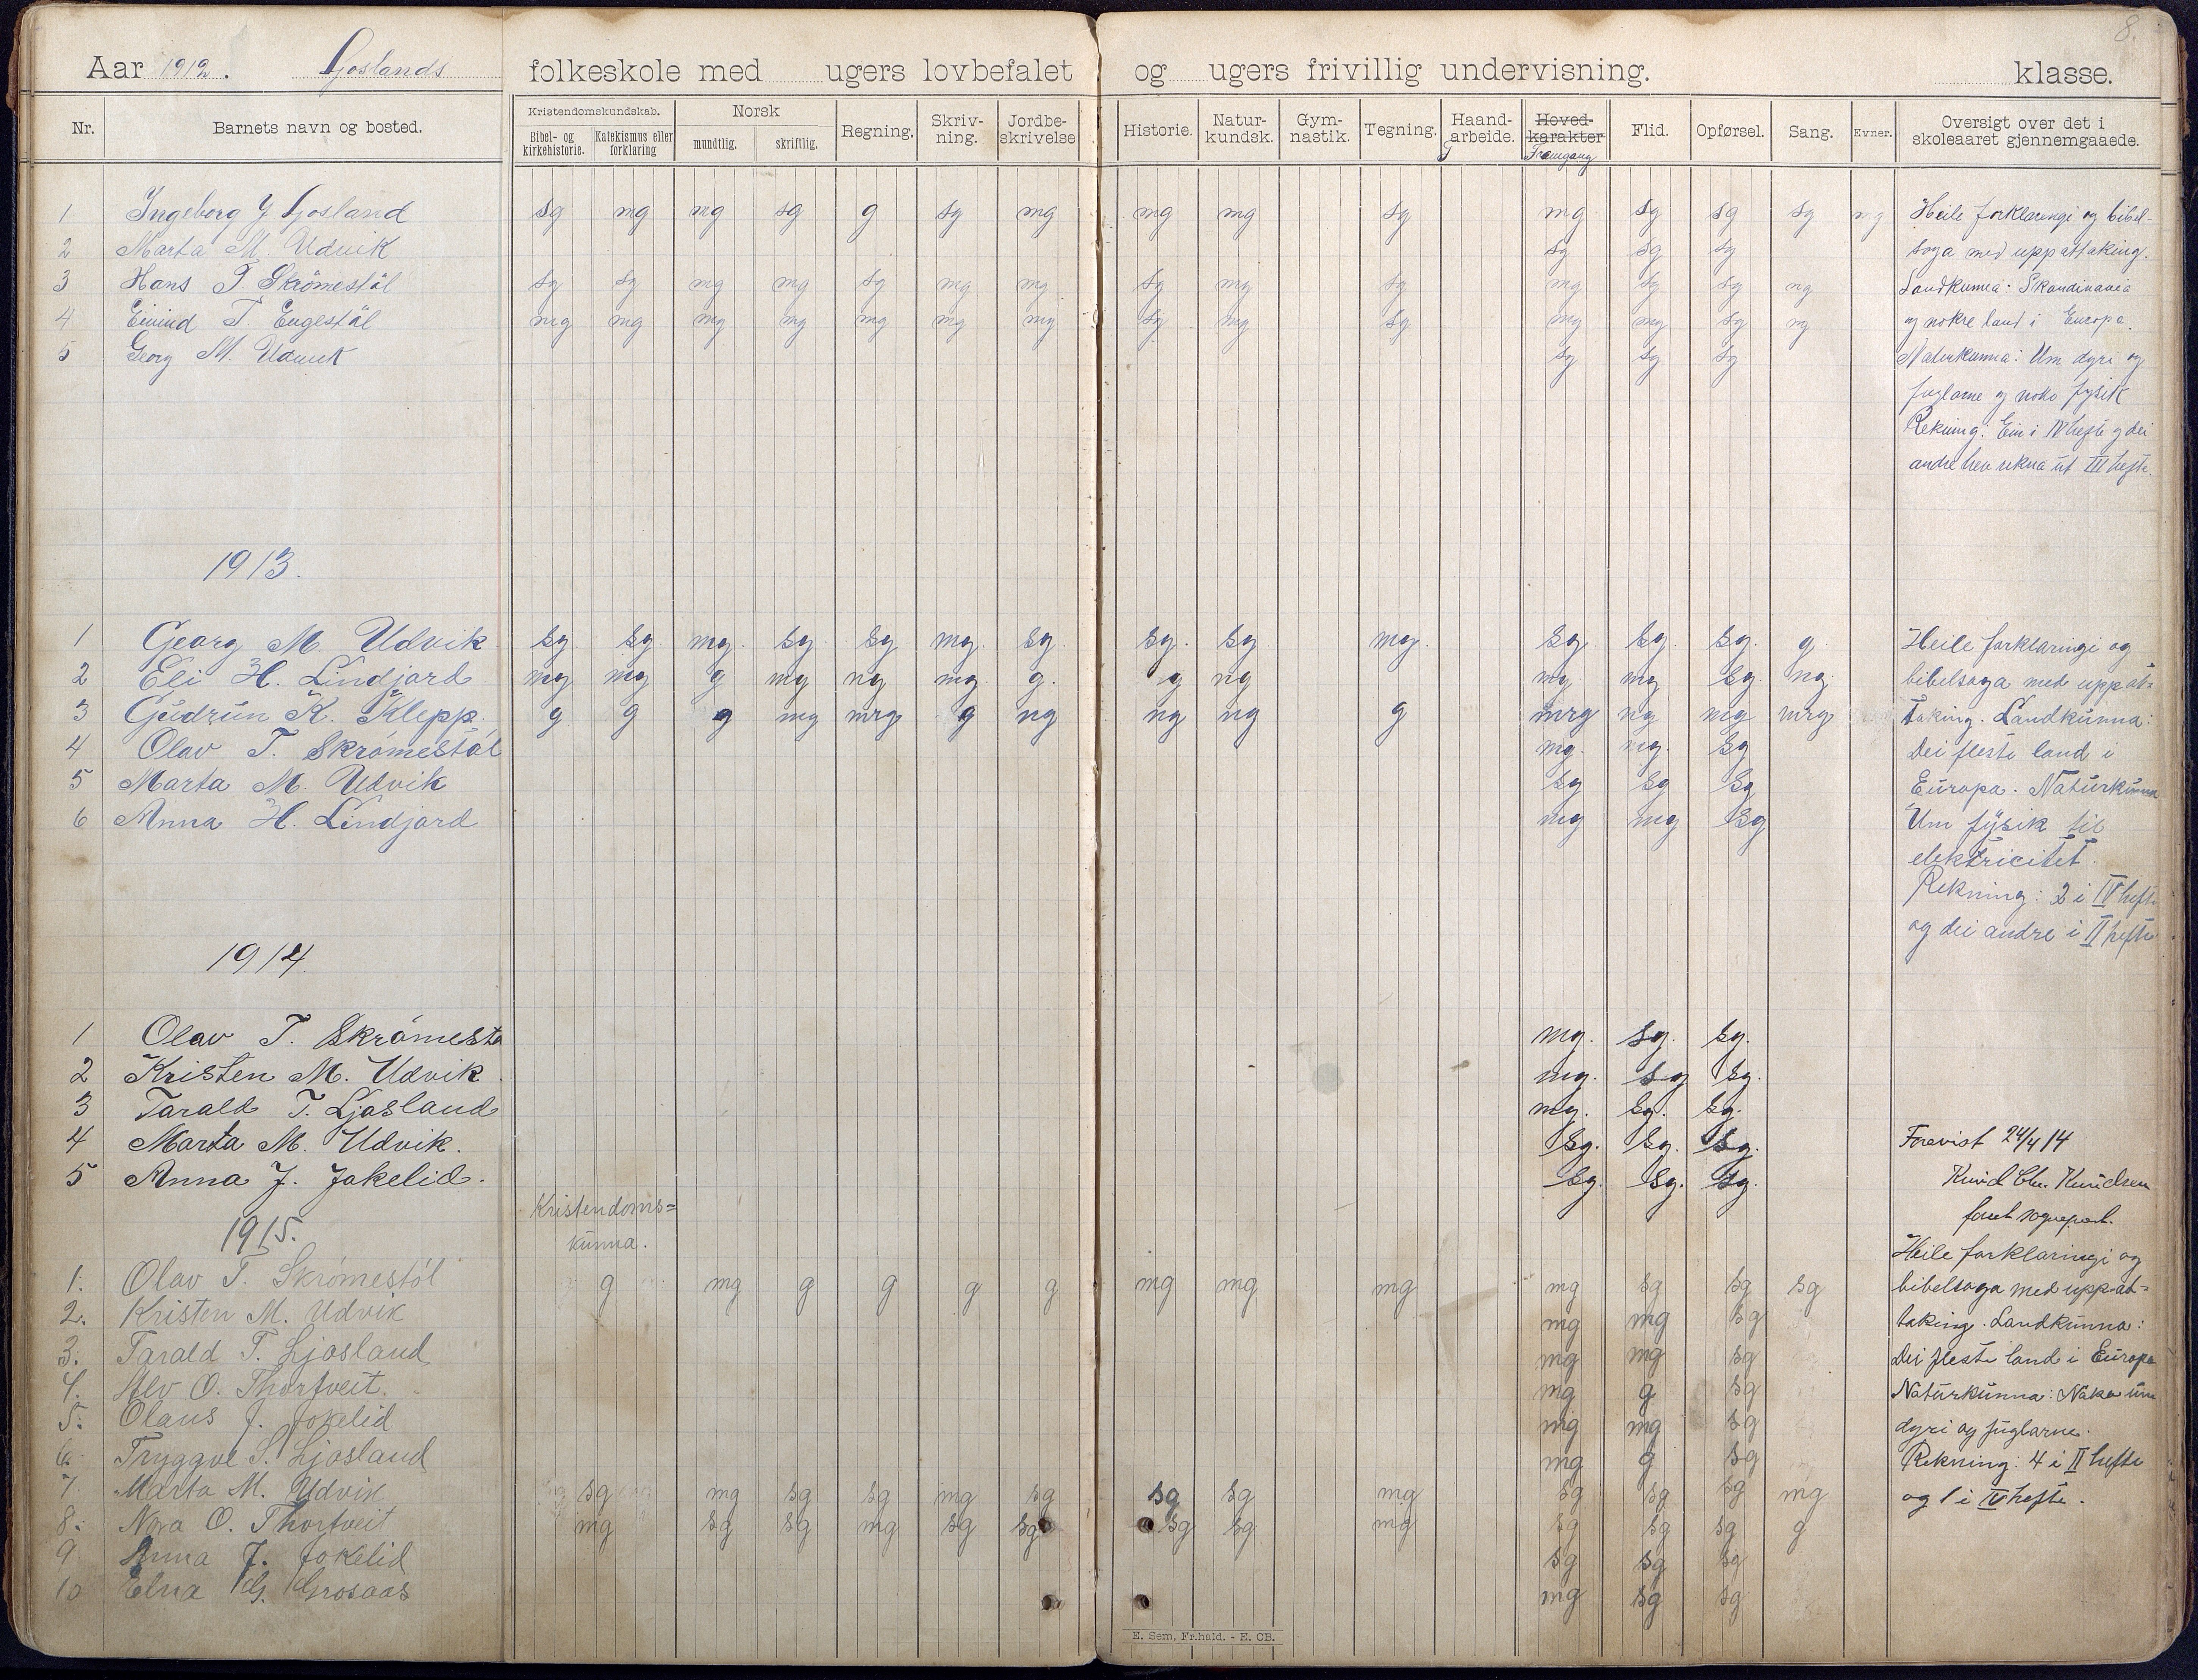 8.
Aar 1912. Ljoslands folkeskole med ugers lovbefalet og ugers frivillig undervisning. klasse.
Nr. Barnets navn og bosted. Kristendomskundskab. Bibel- og kirkehistorie. Katekismus eller forklaring Norsk mundtlig. skriftlig. Regning. Skriv-ning. Jordbe-skrivelse Historie. Natur-kundsk. Gym-nastik. Tegning. Haand-arbeide. Hoved-karakter Framgang Flid. Opførsel. Sang. Evner. Oversigt over det i skoleaaret gjennemgaaede.
1 Ingeborg J Ljosland sg mg mg sg g sg mg mg mg sg mg sg sg sg mg Heile forklaringi og bibel-
2 Marta M. Udvik sg sg sg soga med uppattaking.
3 Hans T. Skrömestöl sg sg mg mg sg mg mg sg mg sg mg sg sg ng Landkunna: Skandinavia
4 Eivind T. Eugestöl mg mg mg mg mg mg mg sg mg sg mg mg sg ng og nokre land i Europa.
5 Georg M. Udvik sg sg sg Naturkunna: Um dyri og
fuglarne og noko fysik
Rekning: Ein i IV hefte og dei
andre hev rekna ut III hefte.
1913.
1 Georg M. Udvik sg sg mg. sg sg mg. sg. sg. sg. mg. sg. sg. sg. g Heile forklaringi og
2 Eli H. Lindjord mg mg g mg ng mg g. g ng mg mg sg. ng. bibelsoga med uppat=
3 Gudrun K. Klepp. g g g mg mrg g ng ng ng g mrg ng mg mrg taking. Landkunna:
4 Olav T. Skrömestöl mg. mg. sg Dei fleste land i
5 Marta M. Udvik sg sg sg Europa. Naturkunna
6 Anna H. Lindjord mg mg sg Um fysik til
elektricitet.
Rekning: 2 i IV hefte
og dei andre i II hefte
1914
1 Olav T. Skrömestø mg. sg. sg.
2 Kristen M. Udvik mg. sg sg.
3 Tarald T. Ljosland mg. sg. sg.
4 Marta M. Udvik. sg. sg. sg. Forevist 24/4 14
5 Anna J. Jokelid. sg. sg. sg. Knud Chr. Knudsen
Kristendoms=
kunna.
1915.
Heile forklaringi og
1. Olav T. Skrömestöl g mg g g g g mg mg mg mg sg sg sg bibelsoga med uppat=
2. Kristen M. Udvik mg mg sg taking. Landkunna:
3. Tarald T. Ljosland mg mg sg Dei fleste land i Europa
4. Alv O. Thorfveit. mg g sg Naturkunna: Noko um
5. Olaus J. Jokelid mg mg sg dyri og fuglarne.
6. Tryggve S. Ljosland mg g sg Rekning: 4 i II hefte
7. Marta M. Udvik sg mg sg sg mg sg sg sg mg sg sg sg mg og 1 i IV hefte.
8. Nora O. Thorfveit mg sg sg mg sg sg sg sg mg sg sg sg g
9 Anna J. Jokelid sg sg sg
10 Elna G. Grosaas mg sg sg
E. Sem, Fr.hald. - E. CB.